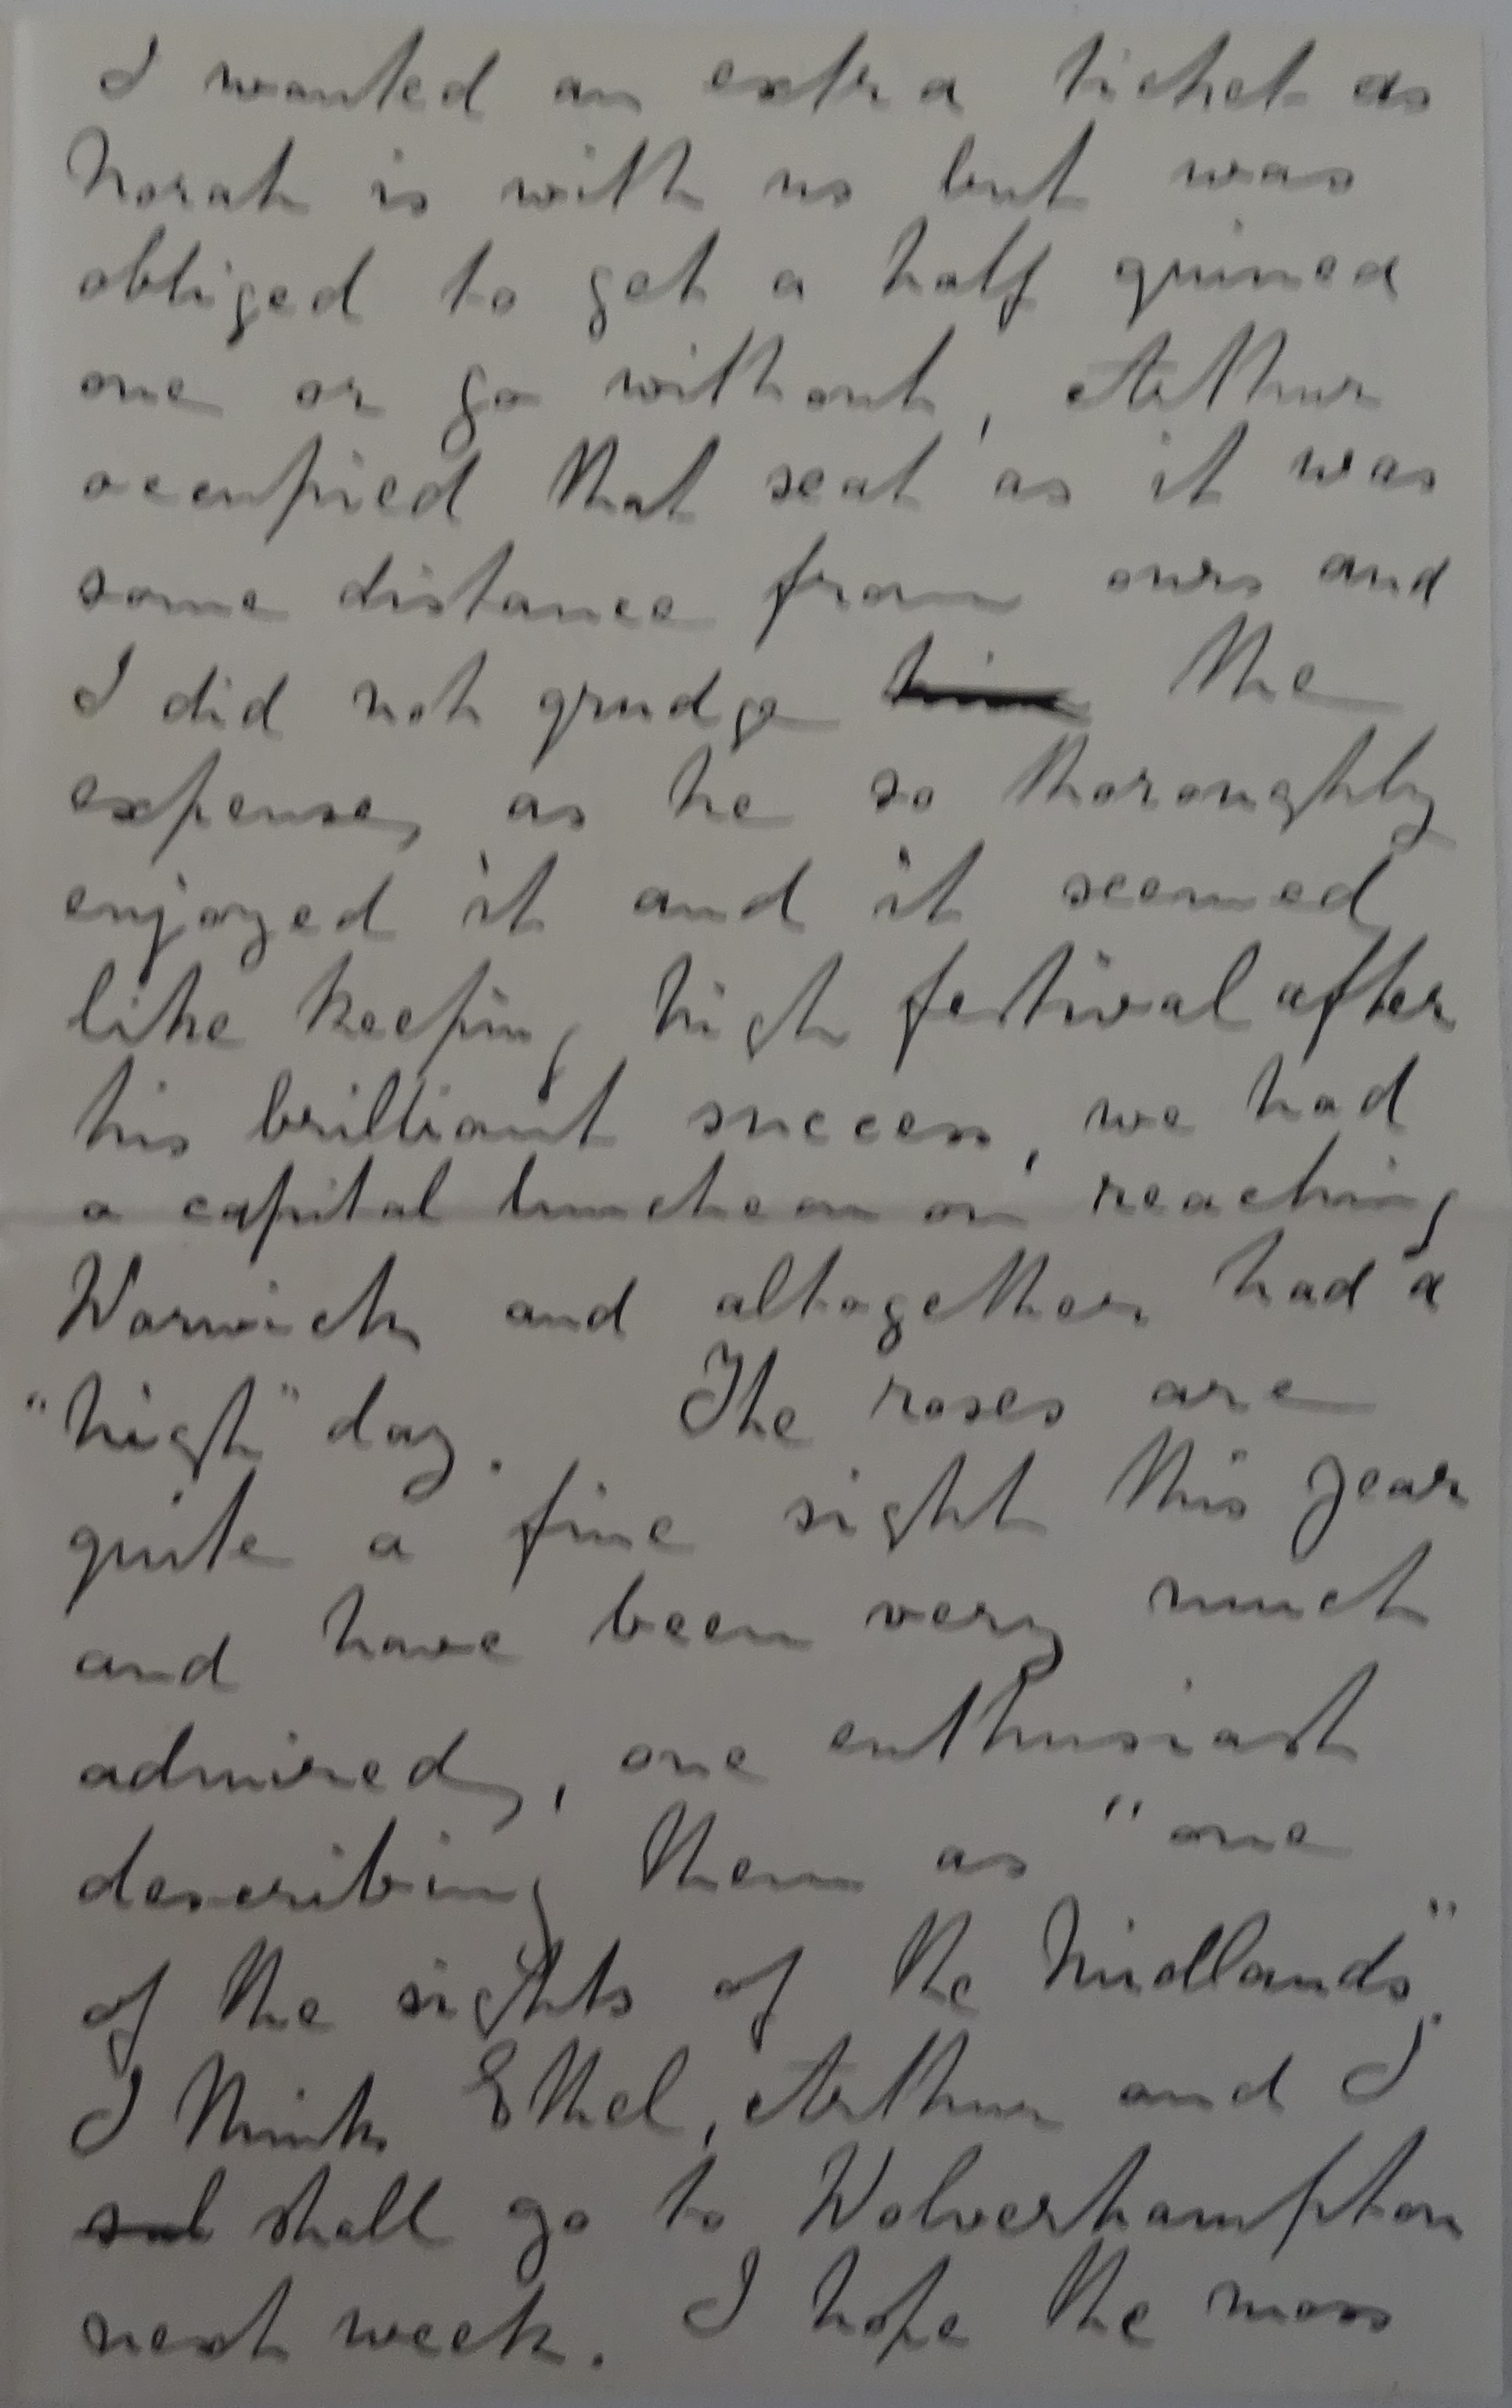 I wanted an extra ticket as
Norah is with us but was
obliged to get a half guinea
one or go without, Arthur
occupied that seat as it was
some distance from ours and
I did not grudge him the
expense, as he so thoroughly
enjoyed it and it seemed
like keeping high festival after
his brilliant success, we had
a capital luncheon on reaching
Warwick and altogether had a
"high" day. The roses are
quite a fine sight this year
and have been very much
admired, one enthusiast
describing them as "one
of the sights of the Midlands".
I think Ethel, Arthur and I
sal shall go to Wolverhampton
next week. I hope the moss